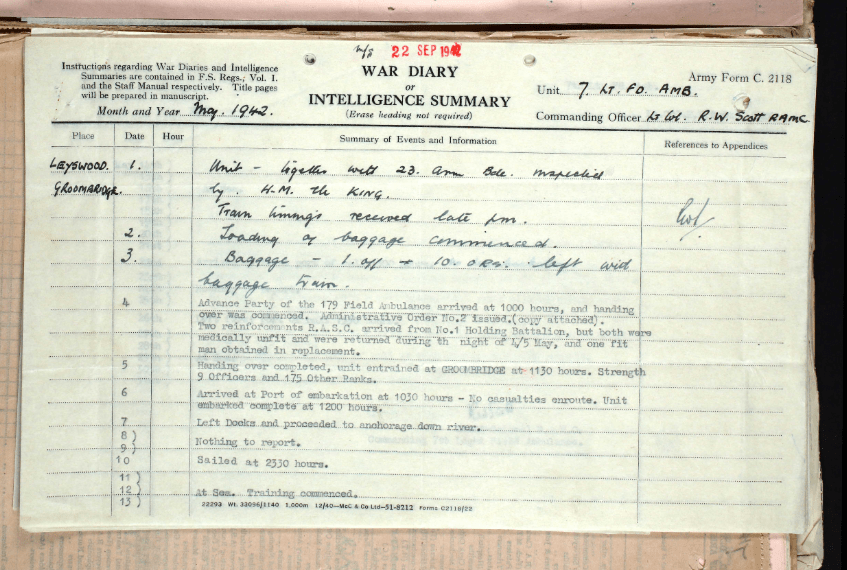 22 SEP 1942
Instructions regarding War Diaries and Intelligence
Summaries are contained in F.S. Regs., Vol. I.
and the Staff Manual respectively. Title pages
will be prepared in manuscript.
Month and Year May. 1942.
WAR DIARY
or
INTELLIGENCE SUMMARY
(Erase heading not required)
Army Form C. 2118
Unit 7. Lt. FD. AMB.
Commanding Officer Lt Col. R.W. Scott RAMC
Place Date Hour Summary of Events and Information References to Appendices
LEYSWOOD. 1. Unit - together with 23. Arm Bde. inspected
GROOMBRIDGE. by. H.M. the KING.
Train timings received late pm.
2. Loading of baggage commenced.
3. Baggage - 1. off + 10. ORs. left with
baggage train.
4 Advance Party of the 179 Field Ambulance arrived at 1000 hours, and handing
over was commenced. Administrative Order No.2 issued.(copy attached).
Two reinforcements R.A.S.C. arrived from No.1 Holding Battalion, but both were
medically unfit and were returned during th night of 4/5 May, and one fit
man obtained in replacement.
5 Handing over completed, unit entrained at GROOMBRIDGE at 1130 hours. Strength
9 Officers and 175 Other Ranks.
6 Arrived at Port of embarkation at 1030 hours - No casualties enroute. Unit
embarked complete at 1200 hours.
7 Left Docks and proceeded to anchorage down river.
8)
9) Nothing to report.
10 Sailed at 2330 hours.
11)
12) At Sea. Training commenced.
13)
22293 Wt. 33096/1140 1,000m 12/40—McC & Co Ltd—51-8212 Forms C2118/22